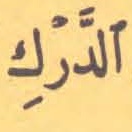 ٱلدَّرْكِ